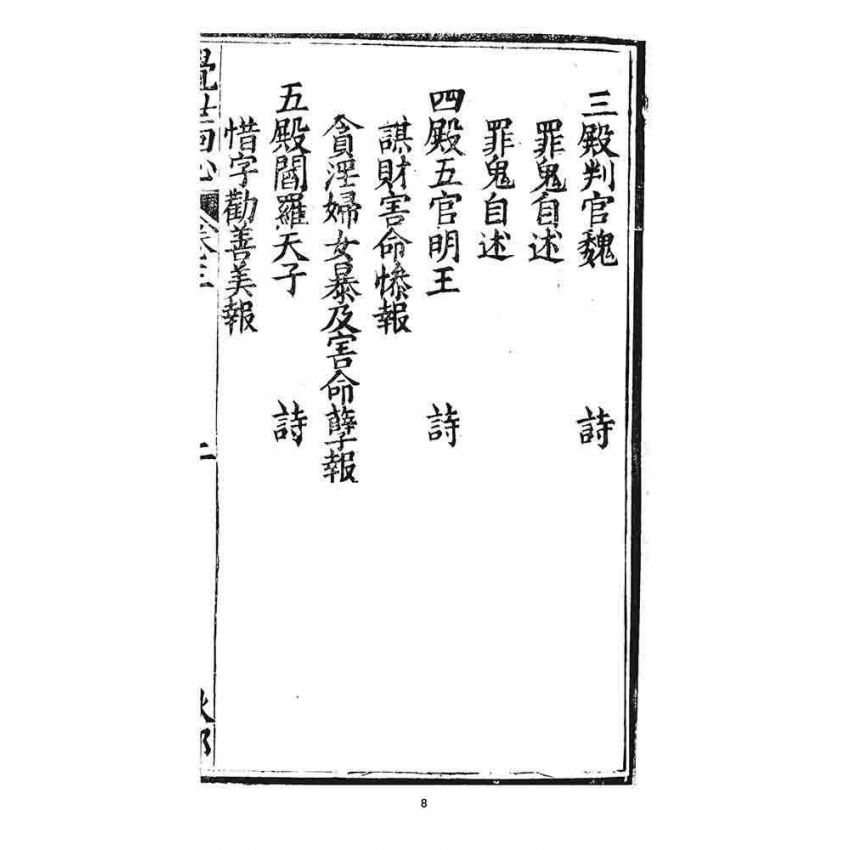 三殿判官魏　詩
罪鬼自述
罪鬼自述
四殿五官明王　詩
謀財害命慘報
貪淫婦女暴及害命孽報
五殿閻羅天子　詩
惜字勸善美報
卷三
8